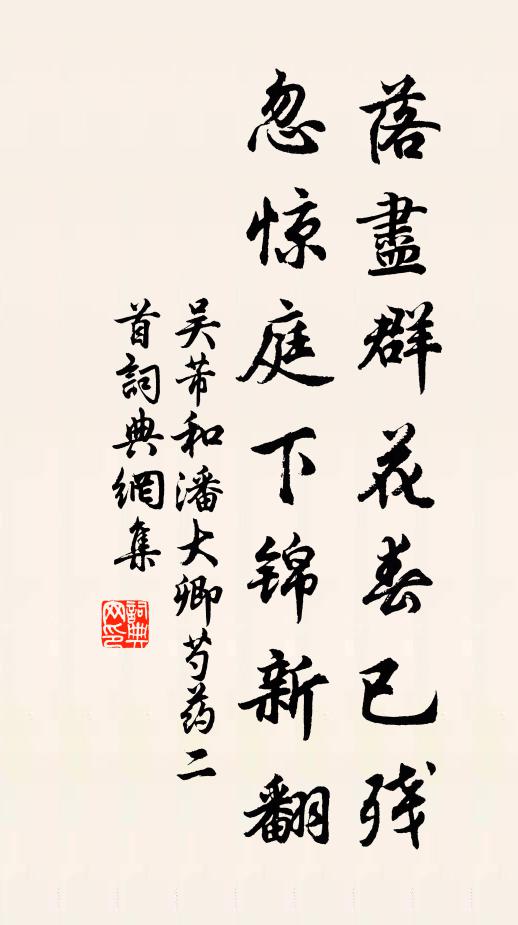 落盡群花春已残
忽惊庭下锦新翻
吴芾和潘大卿芍药二
首詞典網集
詞典网印